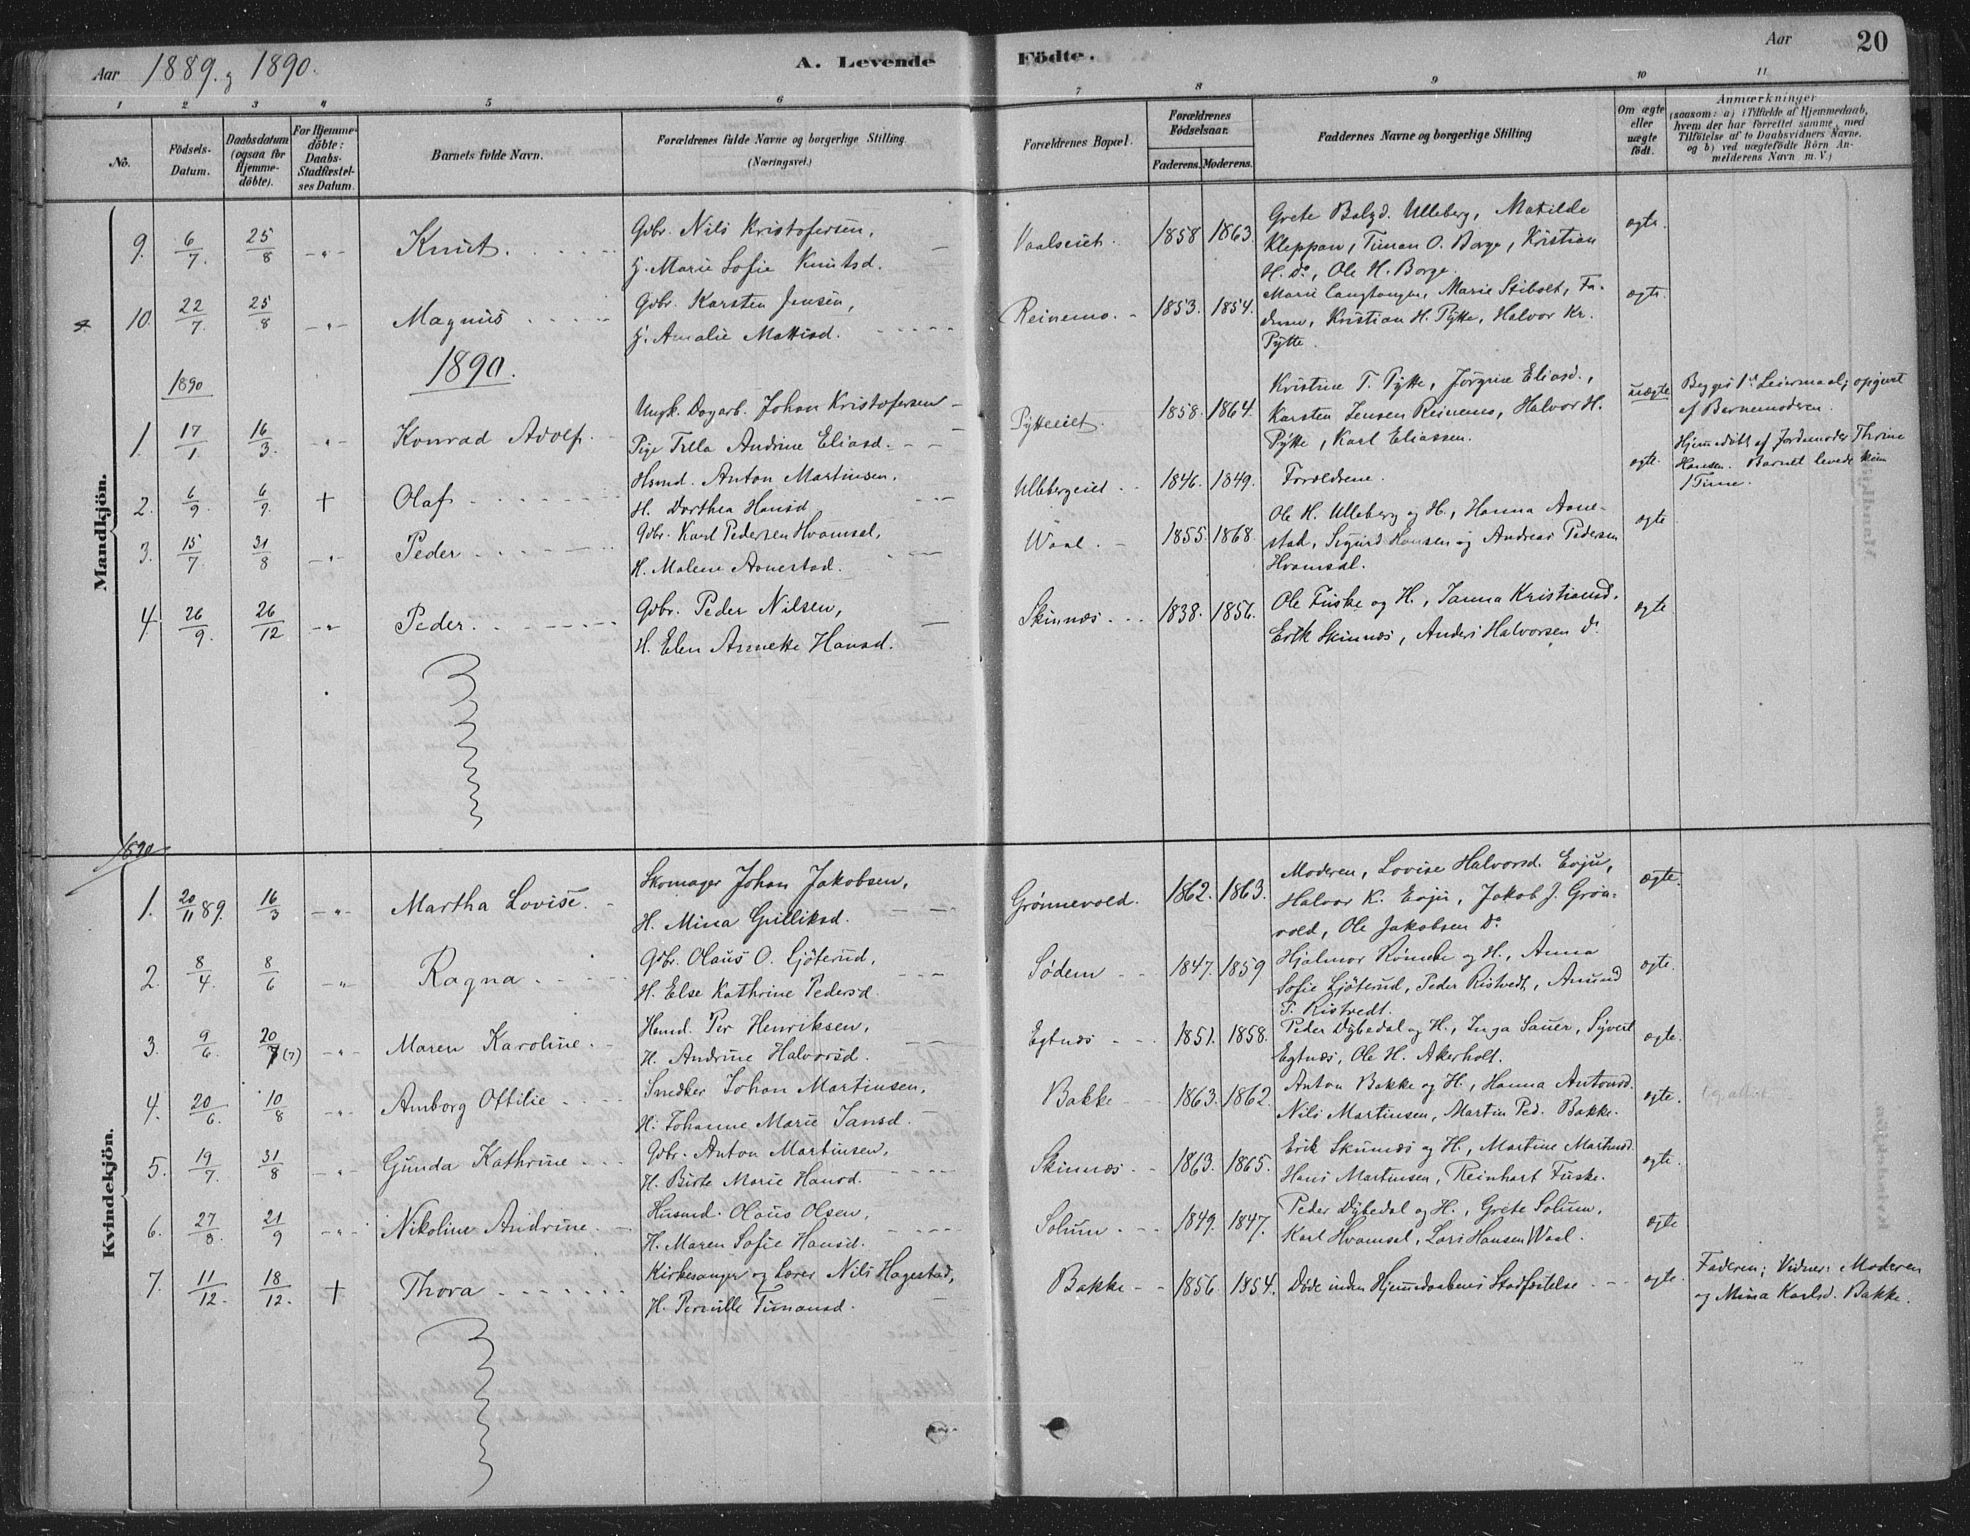 Aar 1889 & 1890. A. Levende Födte. Aar 20
1 2 3 4 5 6 7 8 9 10 11
No.
Födsels-Datum.
Daabsdatum (ogsaa for Hjemme-döbte).
For Hjemme-döbte: Daabs-Stadfæstel-ses Datum.
Barnets fulde Navn.
Forældrenes fulde Navne og borgerlige Stilling
(Næringsvei.)
Forældrenes Bopæl.
Forældrenes Fødselsaar.
Faderens. Moderens.
Faddernes Navne og borgerlige Stilling
Om ægte eller uægte födt.
Anmærkninger
(saasom: a) i Tilfælde af Hjemmedaab,
hvem der har forrettet samme, med
Tilföielse af to Daabsvidners Navne.
og b) ved uægtefödte Börn An-
melderens Navn m. V.)
Mandkjön.
9. 6/7. 25/8 -"- Knut. Gdbr. Nils Kristofersen, H. Marie Sofie Knutsd. Vaalseiet. 1858 1863
Grete Balzd. Ulleberg, Matilde
Kleppan, Timan O. Borge, Kristian
H. do, Ole H. Borge.
ægte.
10. 22/7. 25/8 -"- Magnus Gdbr. Karsten Jensen, H. Amalie Mattisd. Reinemo. 1853. 1854.
Marie Langtangen, Marie Stibolt, Fa-
deren, Kristian H. Pytte, Halvor Kr.
Pytte.
ægte.
1890 1890.
1. 17/1. 16/3. -"- Konrad Adolf. Ungk. Dagarb. Johan Kristofersen Pige Tilla Andrine Eliasd. Pytteeiet. 1858. 1864.
Kristine T. Pytte, Jörgine Eliasd.,
Karsten Jensen Reinemo, Halvor H.
Pytte, Karl Eliassen.
uægte
Begges 1ste Leiermaal; opgivet
af Barnemoderen.
2. 6/9. 6/9 + Olaf Hsmd. Anton Martinsen, H. Dorthea Hansd Ullebergeiet 1846. 1849. Forældrene. ægte.
Hjemmedöbt af Jordemoder Thrine
Hansen. Barnet levede kun
1 Time.
3. 15/7. 31/8 -"- Peder Gdbr. Karl Pedersen Hvamsal, H. Malene Aanestad. Waal. 1855. 1868.
Ole H. Ulleberg og H., Hanna Aane-
stad, Sigurd Hansen og Andreas Pedersen
Hvamsal.
ægte
4. 26/9. 26/12 -"- Peder. Gdbr. Peder Nilsen, H. Elen Annette Hansd. Skinnæs. 1838. 1856.
Ole Fuske og H., Janna Kristiansd.
Erik Skinnæs, Anders Halvorsen do
ægte
1890
Kvindekjön.
1. 20/11 89. 16/3 -"- Martha Lovise. Skomager Johan Jakobsen, H. Mina Gulliksd. Grønnevold. 1862. 1863.
Moderen, Lovise Halvorsd. Evju,
Halvor K. Evju, Jakob J. Grøn-
vold, Ole Jakobsen do
ægte.
2. 8/4. 8/6 -"- Ragna Gdbr. Olaus O. Ljöterud, H. Else Kathrine Pedersd. Södem 1847. 1859
Hjalmar Rönnebe og H., Anna
Sofie Ljöterud, Peder Ristvedt, Amund
T. Ristvedt.
ægte.
3. 9/6. 20/7 (7) -"- Maren Karoline. Hsmd. Per Henriksen, H. Andrine Halvorsd. Egtnæs 1851. 1858.
Peder Dybedal og H., Inga Sauer, Syvert
Egtnæs, Ole H. Akerholt.
ægte.
4. 20/6. 10/8 -"- Amborg Ottilie Snedker Johan Martinsen, H. Johanne Marie Jansd. Bakke 1863. 1862.
Anton Bakke og H., Hanna Antonsd.
Nils Martinsen, Martin Ped. Bakke.
ægte.
5. 19/7. 31/8 -"- Gunda Kathrine Gdbr. Anton Martinsen, H. Birte Marie Hansd. Skinnæs 1863. 1865.
Erik Skinnæs og H., Martine Martinsd.
Hans Martinsen, Reinhart Fuske.
ægte.
6. 27/8. 21/9 -"- Nikoline Andrine. Husmd. Olaus Olsen, H. Maren Sofie Hansd. Solum 1849. 1847.
Peder Dybedal og H., Grete Solum,
Karl Hvamsal, Lars Hansen Waal.
ægte
7. 11/12. 18/12. + Thora Kirkesanger og Lærer Nils Hagestad, H. Pernille Timansd. Bakke 1856. 1854. Döde inden Hjemmedaabens Stadfæstelse ægte.
Faderen; Vidner: Moderen
og Mina Karlsd. Bakke.